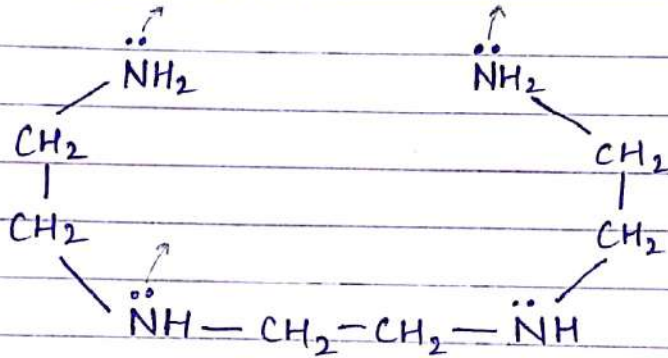 NH₂ NH₂
CH₂ CH₂
CH₂ CH₂
NH — CH₂ – CH₂ — NH